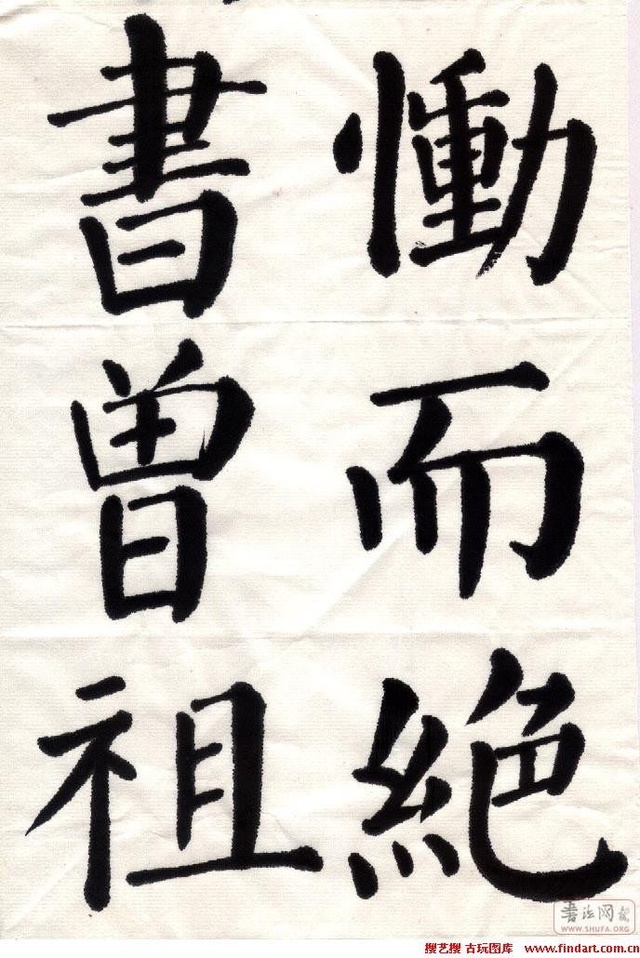 慟而絶
書曾祖
書法网
WWW.SHUFA.ORG
搜艺搜 古玩图库 www.findart.com.cn